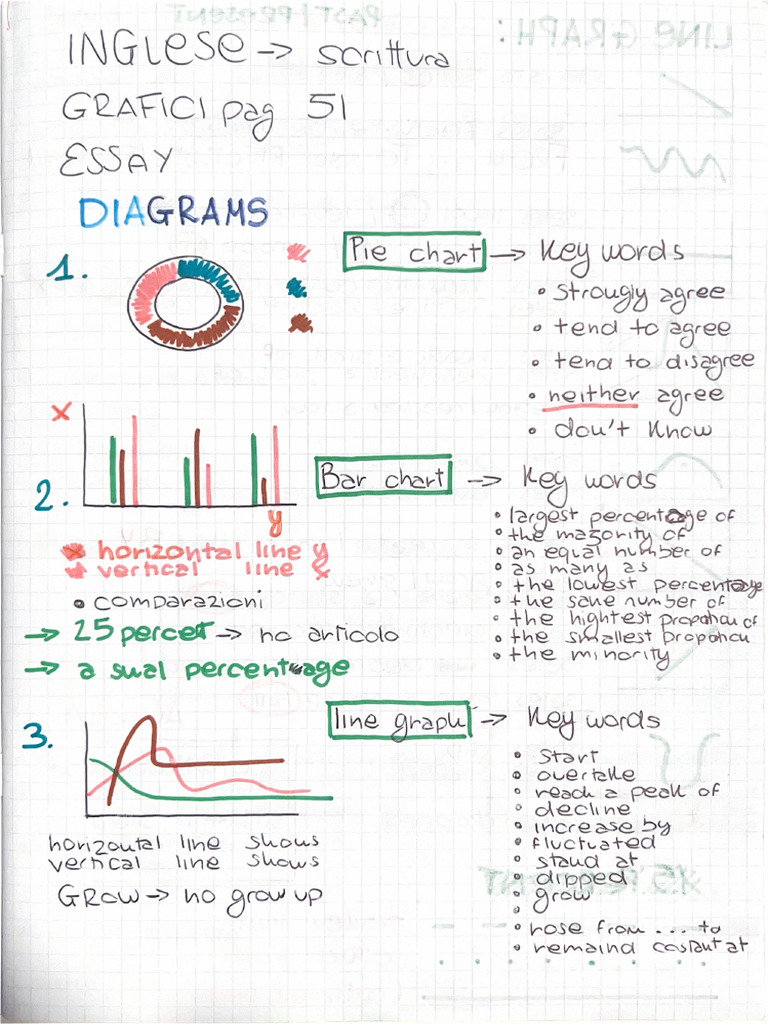 INGLESE → scrittura
GRAFICI pag 51
ESSAY
DIAGRAMS
1.
Pie chart → Key words
• strougly agree
• tend to agree
• tend to disagree
• neither agree
• don't know
x
y
2.
Bar chart → Key words
• largest percentage of
• the majority of
• an equal number of
• as many as
• the lowest percentage
• the sane number of
• the hightest propohou of
• the smallest propohou
• the minority
x horizontal line y
vertical line x
• comparazioni
→ 25 percet → no articolo
→ a sual percentage
3.
line graph → Key words
• start
• overtake
• reach a peak of
• decline
• increase by
• fluctuated
• staud at
• dipped
• grow
•
• rose from .... to
• remaind costaut at
horizoutal line shows
vertical line shows
GROW → no grow up